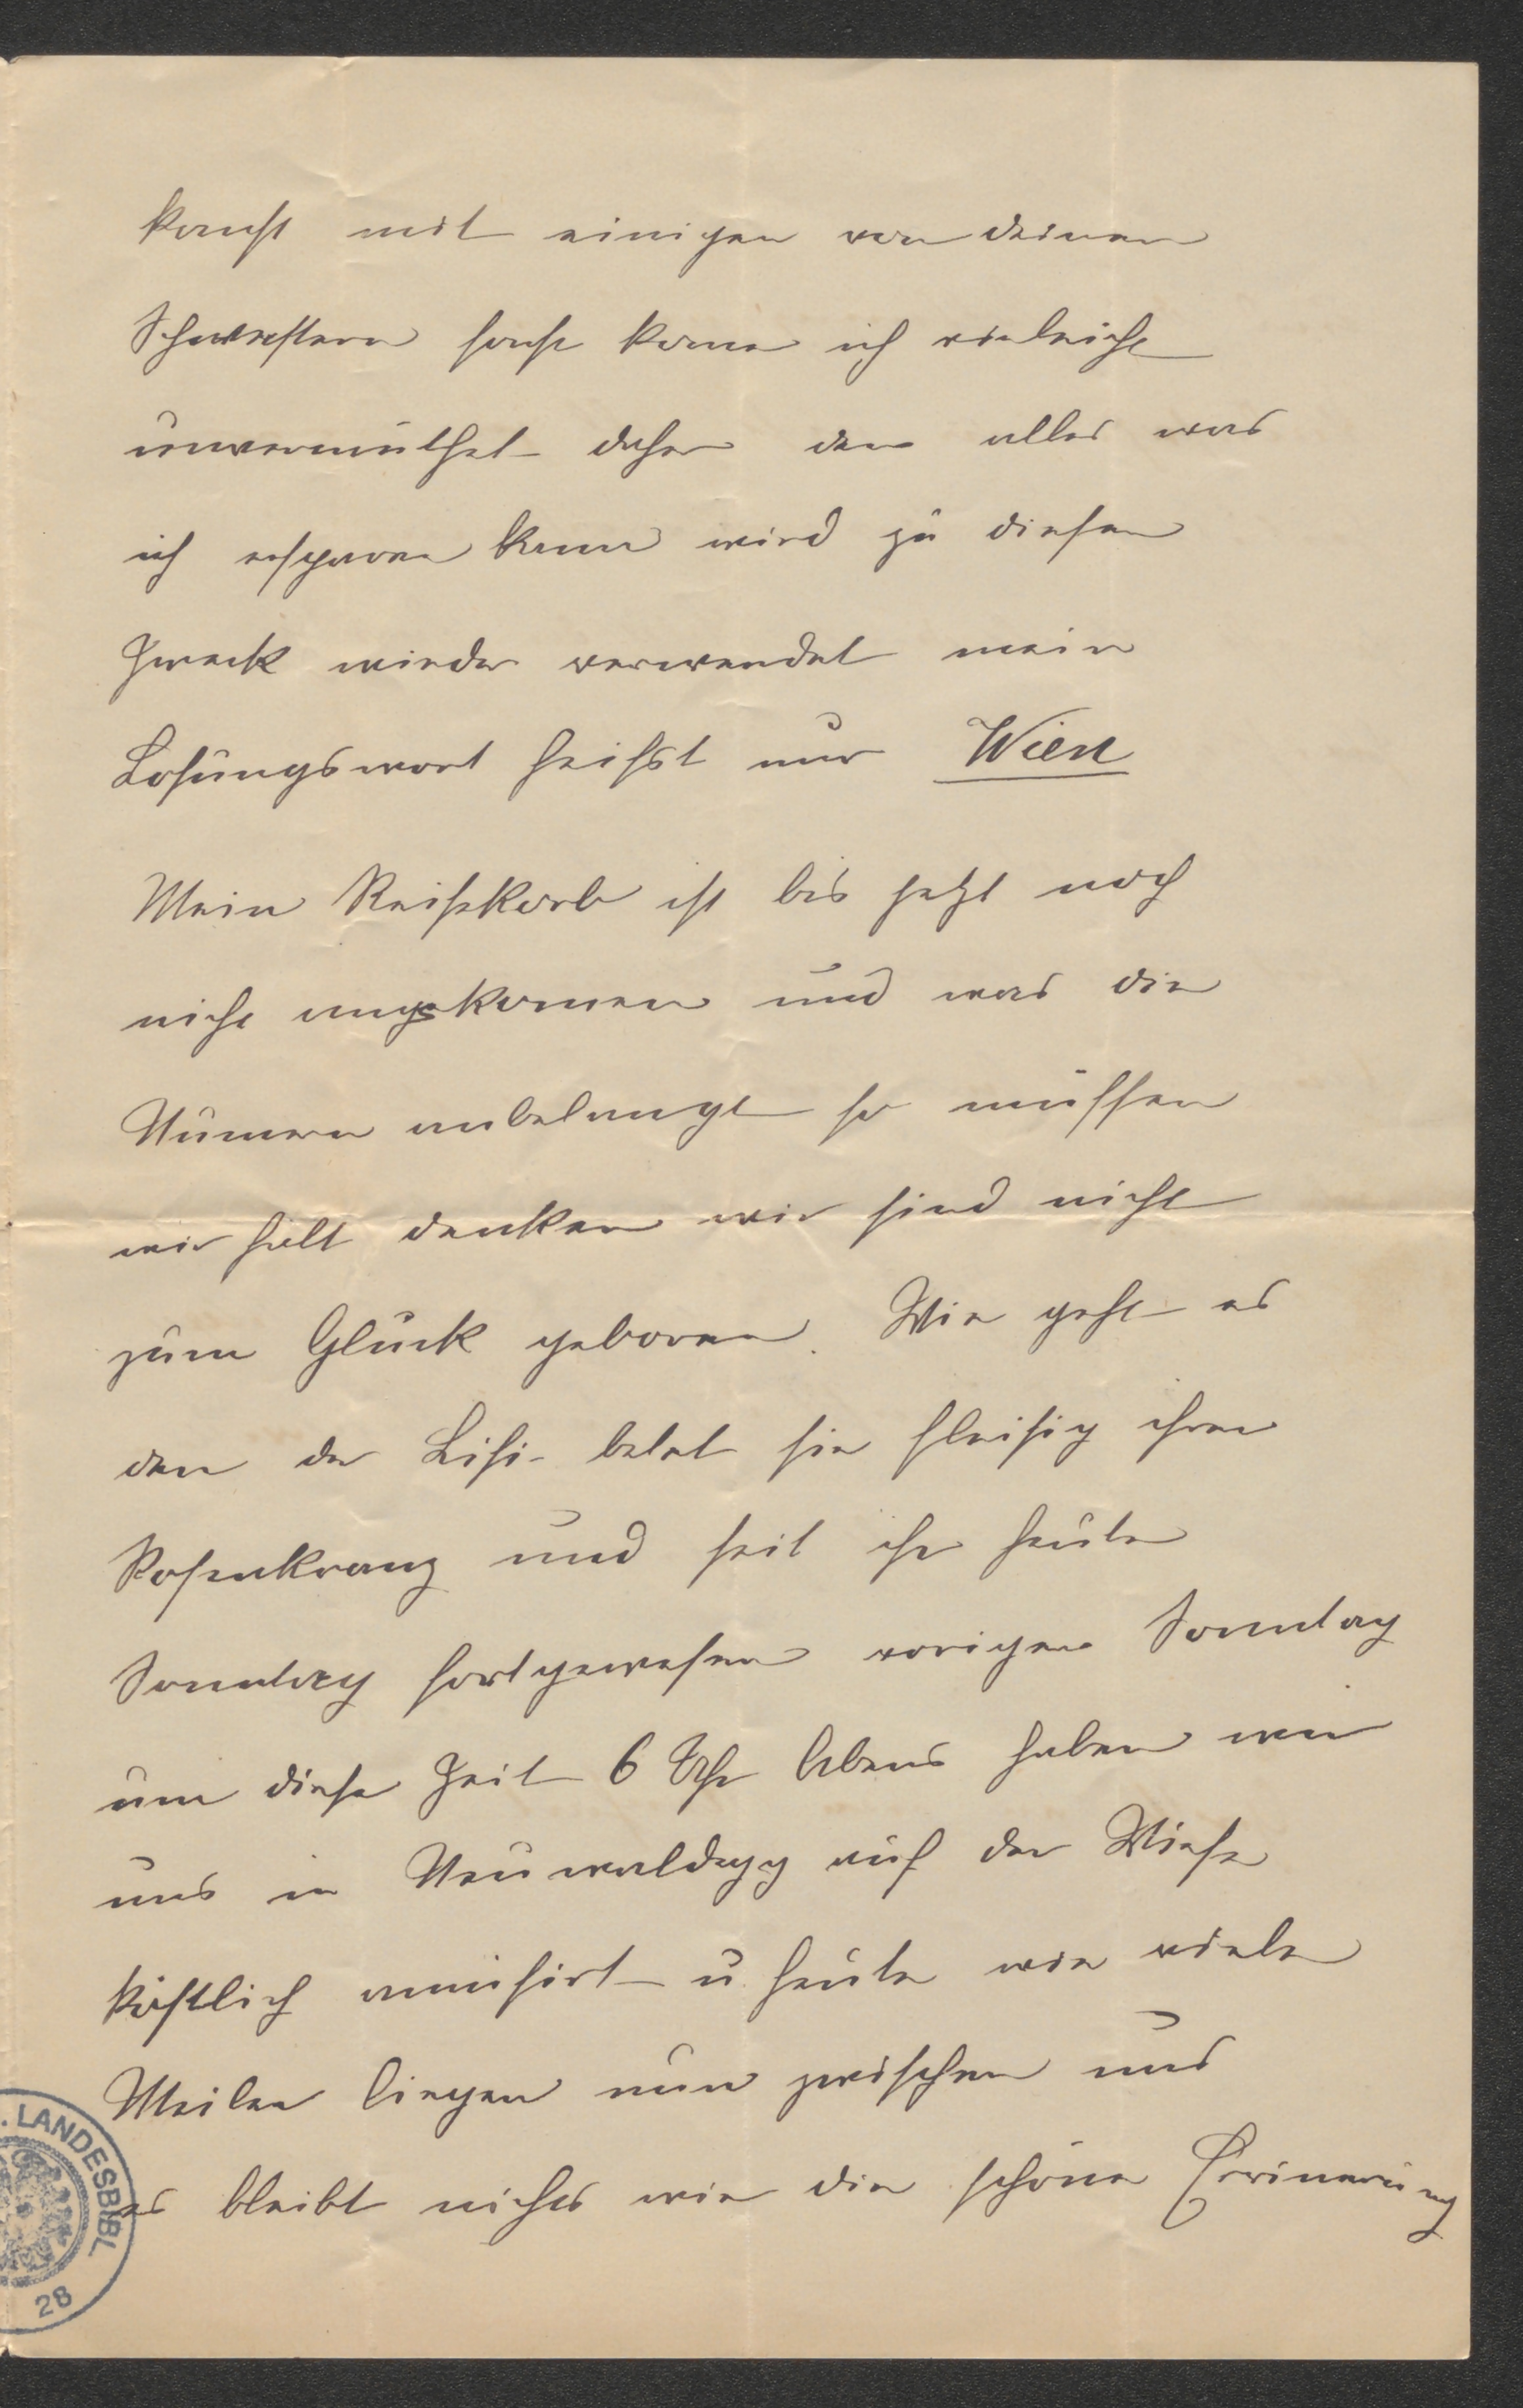 kanst mit einigen von deinen
Schwestern sonst kome ich vieleicht
unvermuthet daher den alles was
ich ersparen kann wird zu diesen
Zweck wieder verwendet mein
Losungswort heißt nur Wien
Mein Reisekorb ist bis jetzt noch
nicht angekomen und was die
Numern anbelangt so müssen
wir halt denken wir sind nicht
zum Glück geboren. Wie geht es
den der Lisi- betet sie fleisig ihren
Rosenkranz und seit ihr heute
Sonntag fortgewesen vorigen Sonntag
um diese Zeit 6 Uhr Abens haben wir
uns in Neuwaldegg auf der Wiese
köstlich amusirt u heute wie viele
Meilen liegen nun zwischen uns
es bleibt nichts wie die schöne Errinerung
. LANDESBIBL
28